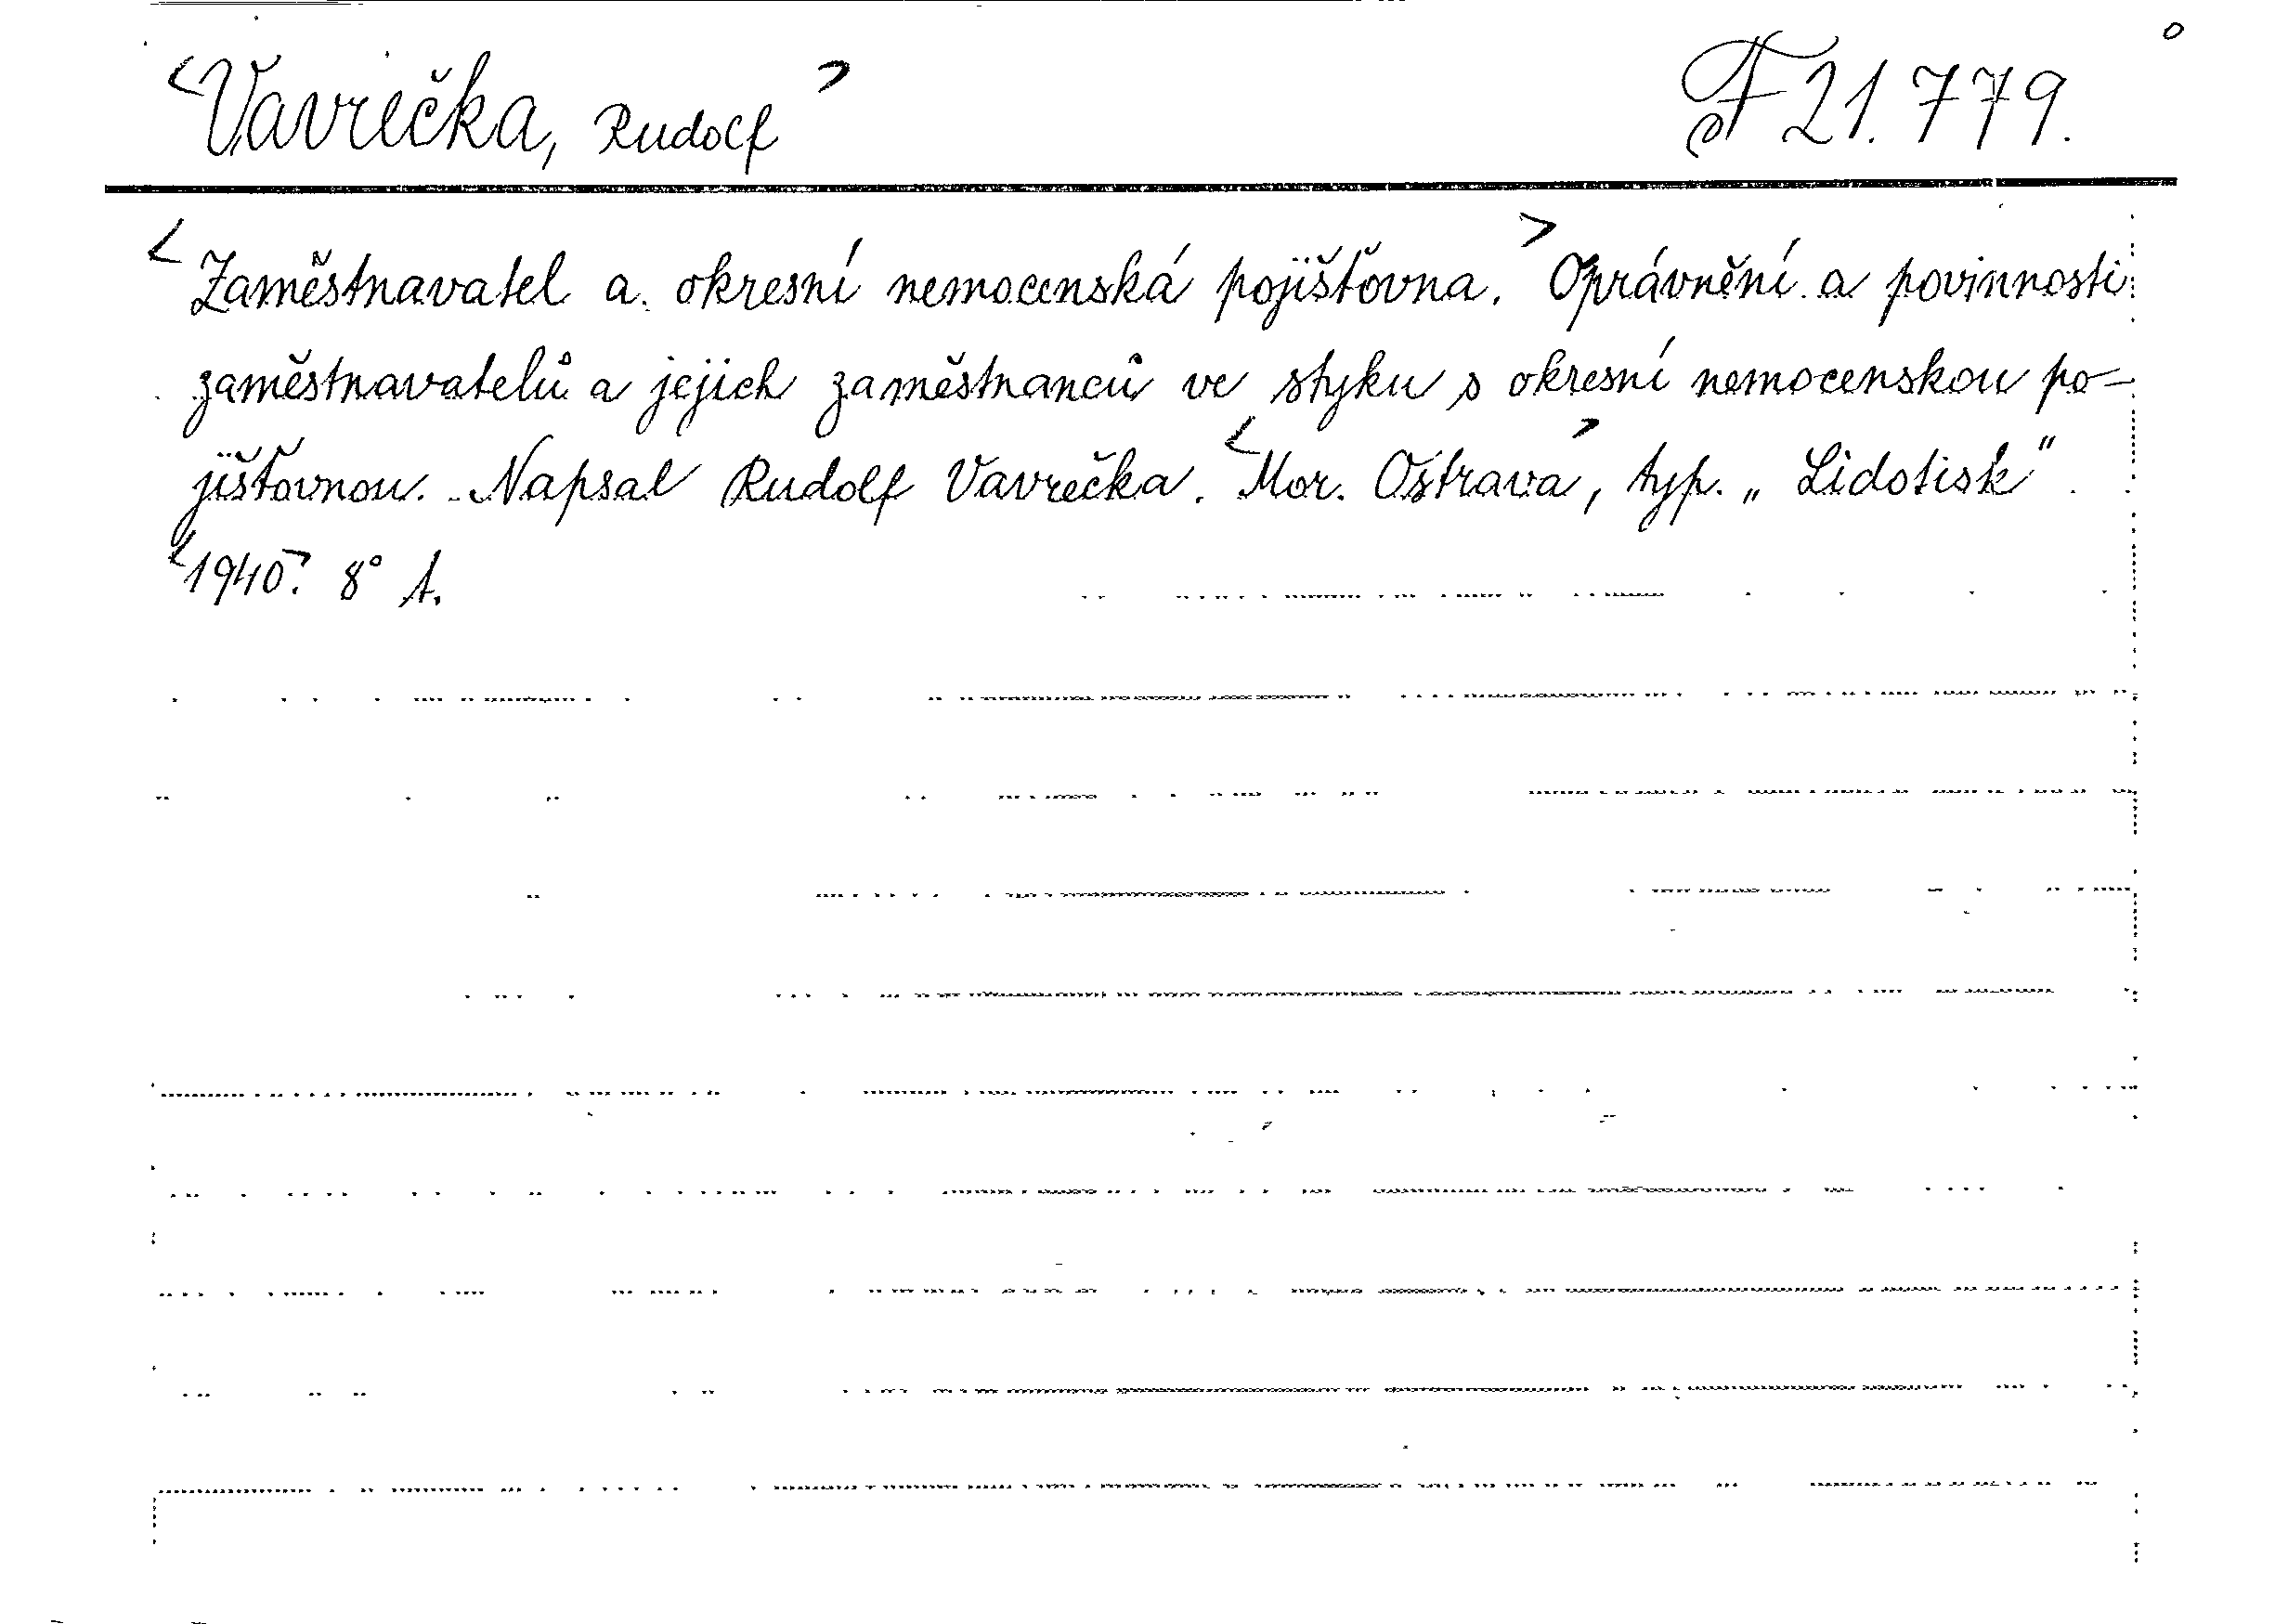 <Vavrečka, Rudolf> F 21.779.
<Zaměstnavatel a okresní nemocenská pojišťovna.> Oprávnění a povinnosti
zaměstnavatelů a jejich zaměstnanců ve styku s okresní nemocenskou po-
jišťovnou. Napsal Rudolf Vavrečka. <Mor. Ostrava>, typ. „Lidotisk".
<1940>. 8° 1.